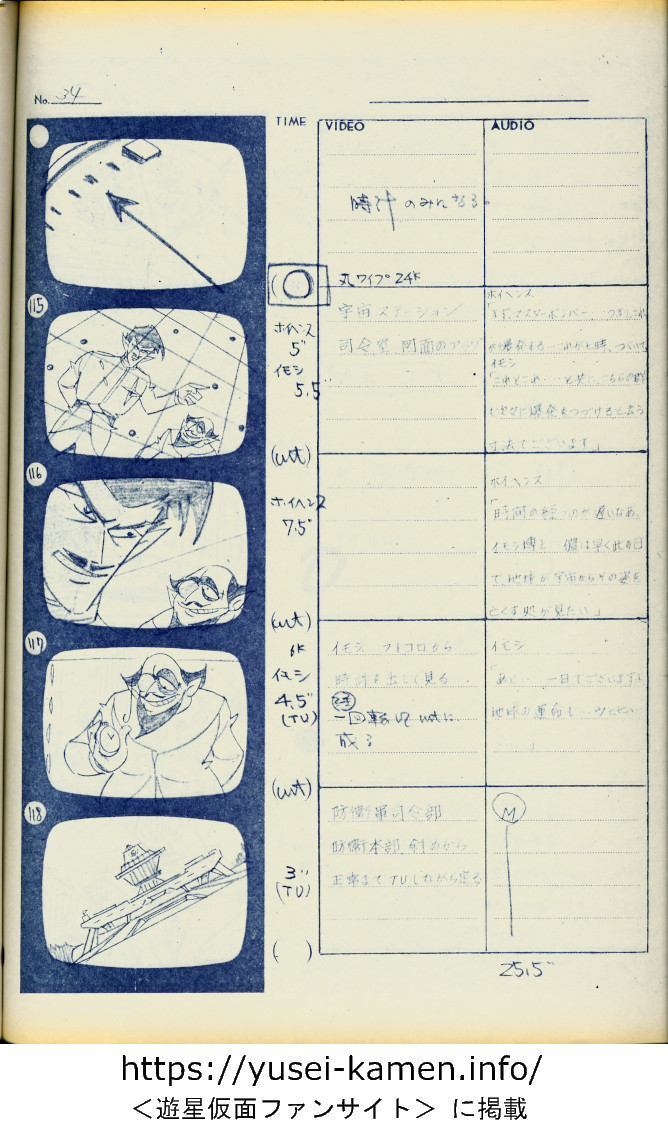 No. 34
TIME
VIDEO
AUDIO
時計のみになる
丸ワイプ 24K
115
ホイヘンス
5"
イモシ
5.5"
(cut)
宇宙ステーション
司令室 図面のアップ
ホイヘンス
イモシ
「これとこれ・・・と共に、こちらの
に次々に爆発をつづけると云う
寸法でございます」
116
ホイヘンス
7.5"
(cut)
ホイヘンス
「時間の経つのが遅いなあ、
イモシ博士 僕は早く此の目
で、地球が宇宙からその姿を
とくす処が見たい」
117
6K
イモシ
4.5"
(TU)
(cut)
イモシ フトコロから
時計を出して見る
一回転してcutに
成る
イモシ
「あと・・一日でございます
地球の運命も・・
」
118
3"
(TU)
( )
防衛軍司令部
防衛本部 斜めから
正常までTUしながら戻る
M
25.5"
https://yusei-kamen.info/
＜遊星仮面ファンサイト＞ に掲載